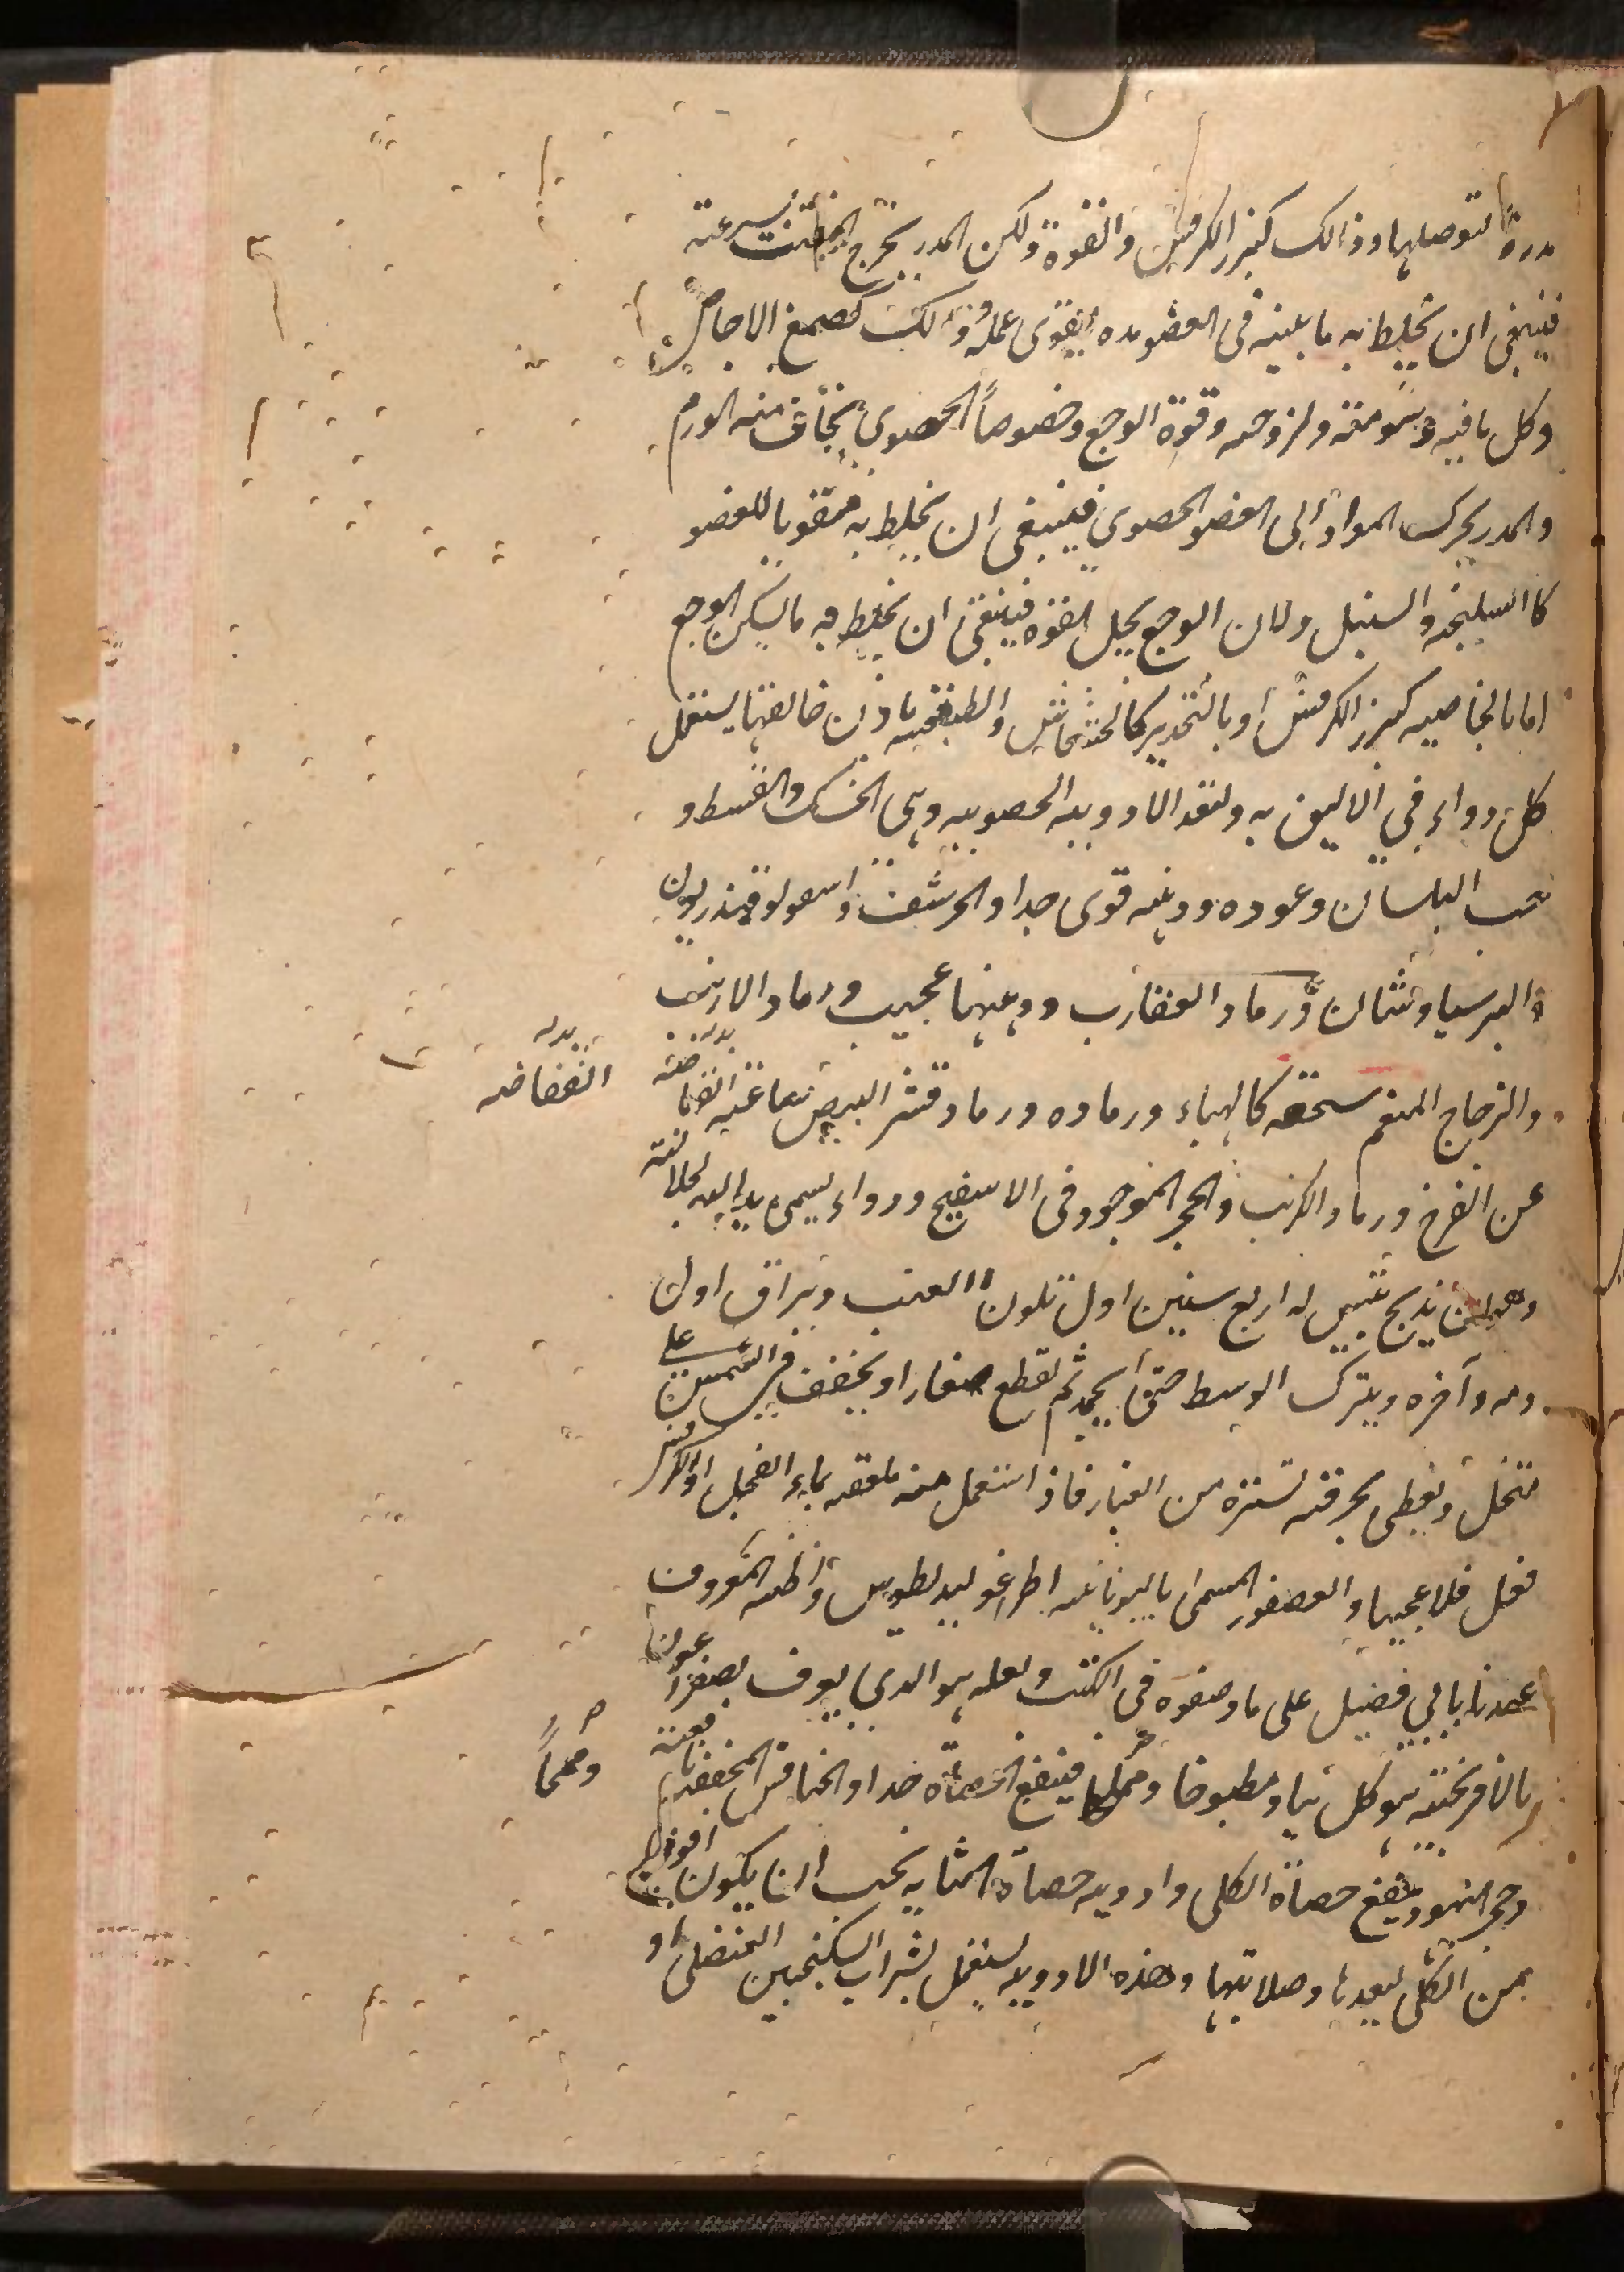 مدرة لتوصلها وذالك كبزر الكرفس والفوة ولكن المدر يخرج المفتت بسرعة
فينبغى ان يخلط به ما يلبثه فى العضو مده ليقوى عمله وذالك كصمغ الاجاص
وكل ما فيه دسومته ولزوجه وقوة الوجع وخصوصاً الحصوى يخاف منه الورم
والمدر يحرك المواد الى العضو الحصوى فينبغى ان يخلط به مقويا للعضو
كا السليخه والسنبل ولان الوجع يحل القوه فينبغى ان يخلط به ما يسكن الوجع
اما بالخاصيه كبزر الكرفس او بالتخدير كالخشخاش والطبيعة باذن خالقها يستعمل
كل دواء فى الاليق به ولنعد الادويه الحصويه وهى الخسك والقسط و
حب البلسان وعوده ودهنه قوى جدا والحرشف واسقولوقندريون
والبرسياوشان ورماد العقارب ودهنها عجيب ورماد الارنب
والزجاج المنعم سحقه كالهباء ورماده ورماد قشر البيض ساعة انفاضه
بدله انفضاضه
عن الفرخ ورماد الكرنب والحجر الموجود فى الاسفنج ودواء يسمى يد الله لجلالته
وهو ان يذبح تيس له اربع سنين اول تلون العنب ويراق اول
دمه وآخره ويترك الوسط حتى يجمد ثم يقطع صغارا ويجفف فى الشمس على
منخل ويغطى بخرقته تستره من الغبار فاذا استعمل منه ملعقه بماء الفجل او الكرفس
فعل فعلا عجيبا والعصفور المسمى باليونانيه اطراغوليديطوس واظنه المعروف
عندنا بابى فضيل على ما وصفوه فى الكتب ولعله هو الذى يعرف بصفراغون
بالافرنجيه يوكل نيا ومطبوخا ومملحا فينفع الحصاة جدا والخنافس المجففه نافعته
ومملحاً
وحجر اليهود ينفع حصاة الكلى وادويه حصاة المثانه يجب ان يكون اقوى
من الكلى لبعدها وصلابتها وهذه الادويه يستعمل بشراب السكنجبين العنصلى او